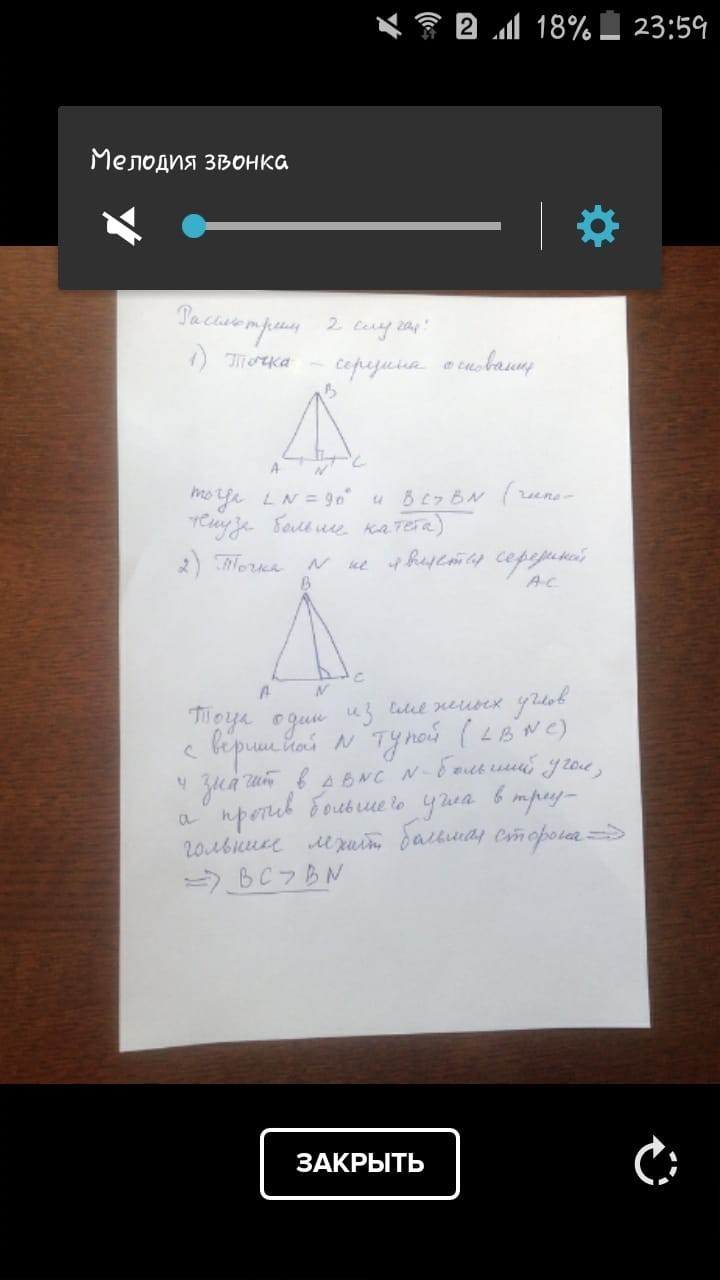 2 18% 23:59
Мелодия звонка
Рассмотрим 2 случая:
1) Точка – середина основания
B
A N C
тогда ∠N = 90° и BC > BN (гипо-
тенуза больше катета)
2) Точка N не является серединой
AC
B
A N C
Тогда один из смежных углов
с вершиной N тупой (∠BNC)
и значит в △BNC N - больший угол,
а против большего угла в треу-
гольнике лежит большая сторона ⇒
⇒ BC > BN
ЗАКРЫТЬ